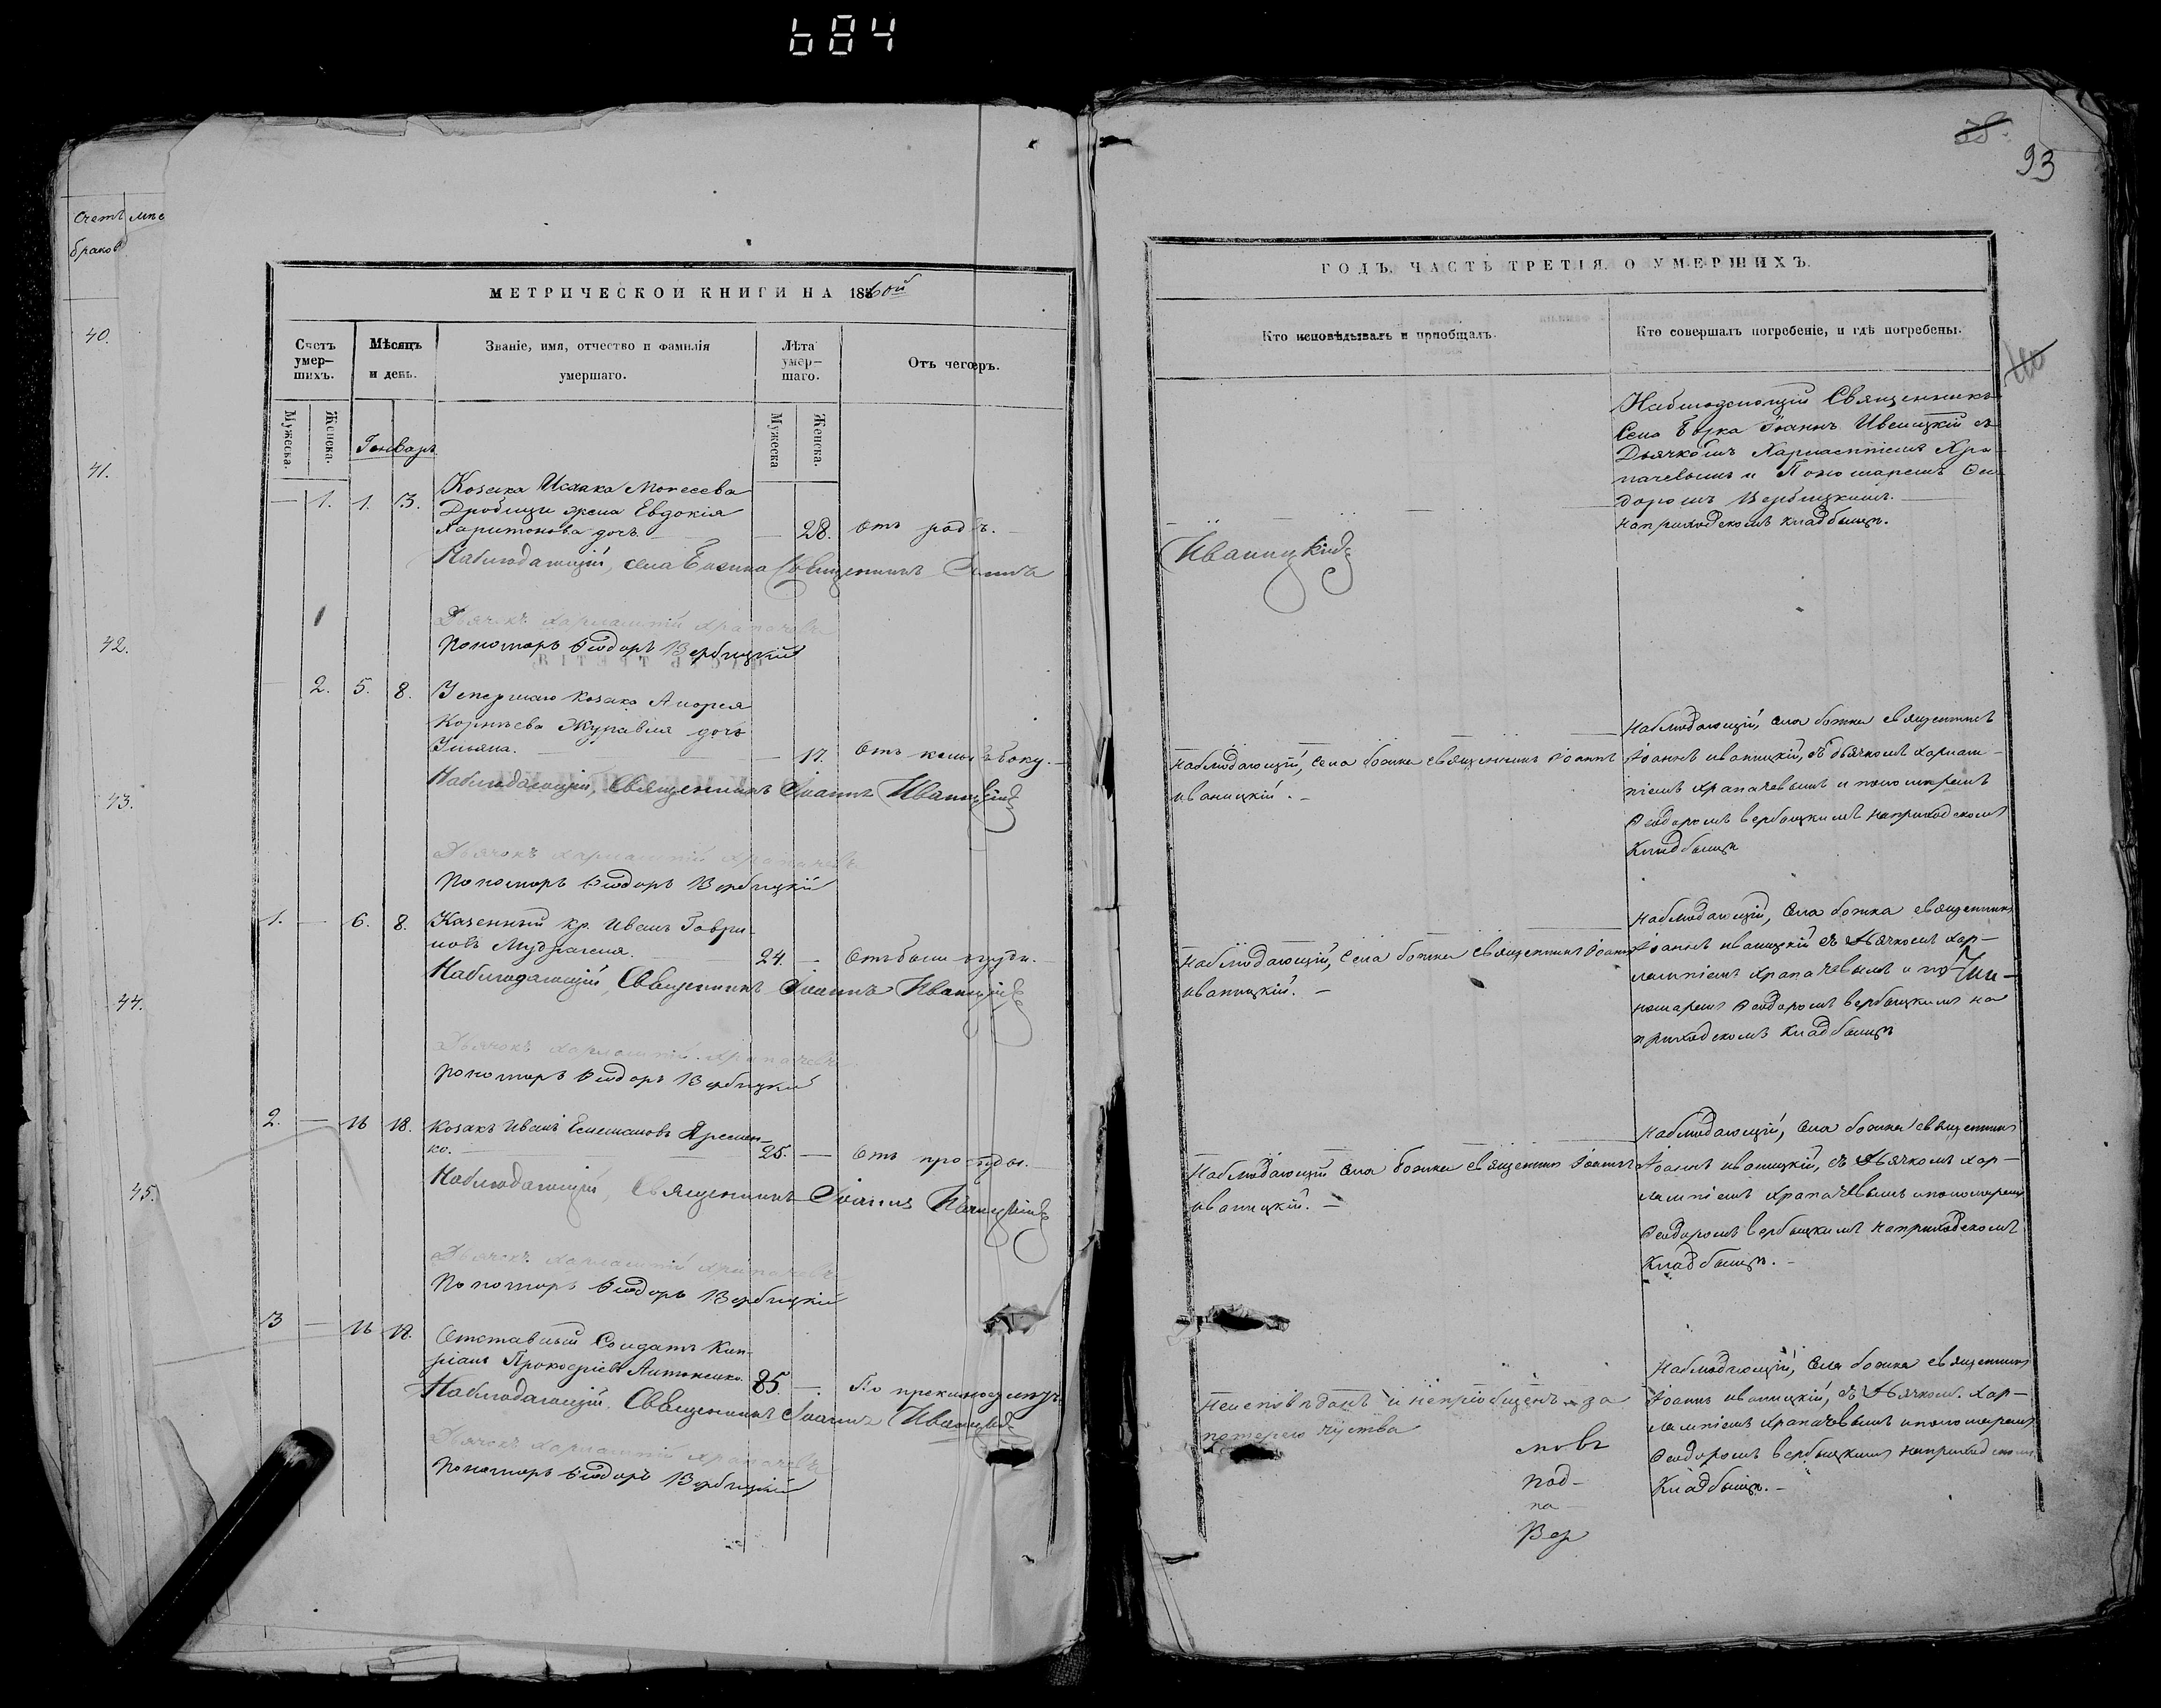 684
Счетъ
браковъ
40.
41.
42.
43.
44.
45.
МЕТРИЧЕСКОЙ КНИГИ НА 1860й
Счетъ умер-
шихъ.
Мужеска.
Женска.
Мѣсяцъ
и день.
Званіе, имя, отчество и фамилія
умершаго.
Лѣта
умер-
шаго.
Мужеска
Женска.
Отъ чего умеръ.
Генварь
— 1. 1. 3. Козака Исаака Моисеева
жена Евдокія
Харитонова дочь. — 28. отъ родъ.
Наблюдающій, села Священникъ
Дьячокъ Харлампій Храпачевъ
Пономарь Ѳеодоръ Вербицкій
— 2. 5. 8. Умершаго козака Андрея
Корнѣева Журавля дочь
Ульяна. — 17. Отъ
Наблюдающій, Священникъ Іоаннъ Иваницкій
Дьячокъ Харлампій Храпачевъ
Пономарь Ѳеодоръ Вербицкій
1. — 6. 8. Казенный кр. Иванъ Гаври-
ловъ 24. — Отъ боли груди.
Наблюдающій, Священникъ Іоаннъ Иваницкій
Дьячокъ Харлампій Храпачевъ
Пономарь Ѳеодоръ Вербицкій
2. — 16 18. Козакъ Иванъ Яремен-
ко. 25. — Отъ простуды.
Наблюдающій, Священникъ Іоаннъ Иваницкій
Дьячокъ Харлампій Храпачевъ
Пономарь Ѳеодоръ Вербицкій
3 — 16 18. Отставный Солдатъ Кип-
ріанъ Прокофіевъ Антоненко. 85. —. По
Наблюдающій, Священникъ Іоаннъ Иваницкій
Дьячокъ Харлампій Храпачевъ
Пономарь Ѳеодоръ Вербицкій
93
ГОДЪ. ЧАСТЬ ТРЕТІЯ О УМЕРШИХЪ.
Кто исповѣдывалъ и пріобщалъ.
Кто совершалъ погребеніе, и гдѣ погребены.
Наблюдающій Священникъ
Села Іоаннъ Иваницкій съ
Дьячкомъ Харлампіемъ Хра-
пачевымъ и Пономаремъ Ѳео-
доромъ Вербицкимъ.
на приходскомъ кладбищѣ.
Иваницкій
Наблюдающій, села божка священникъ Іоаннъ
иваницкій. —
Наблюдающій, села божка священникъ
Іоаннъ иваницкій, съ дьячкомъ харлам-
піемъ храпачевымъ и пономаремъ
Ѳеодоромъ вербицкимъ на приходскомъ
кладбищѣ
Наблюдающій, села божка священникъ Іоаннъ
иваницкій. —
Наблюдающій, села божка священникъ
Іоаннъ иваницкій съ дьячкомъ хар-
лампіемъ храпачевымъ и по-
номаремъ Ѳеодоромъ вербицкимъ на
приходскомъ кладбищѣ
Наблюдающій села божка священникъ Іоаннъ
иваницкій. —
Наблюдающій, села божка священникъ
Іоаннъ иваницкій, съ дьячкомъ хар-
лампіемъ храпачевымъ и пономаремъ
Ѳеодоромъ вербицкимъ на приходскомъ
кладбищѣ. —
Неисповѣданъ и непріобщенъ за
потерею чуства
Наблюдающій, села божка священникъ
Іоаннъ иваницкій, съ дьячкомъ хар-
лампіемъ храпачевымъ и пономаремъ
Ѳеодоромъ вербицкимъ на приходскомъ
кладбищѣ. —
мовъ
под-
на
Вер